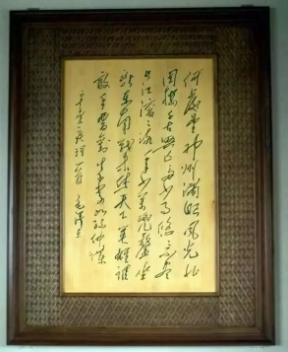 何處望神州滿眼風光北
固樓千古興亡多少事悠々不尽
長江滚々流年少萬兜鍪坐
断東南戰未休天下英雄誰
敵手曹劉生子當如孫仲謀